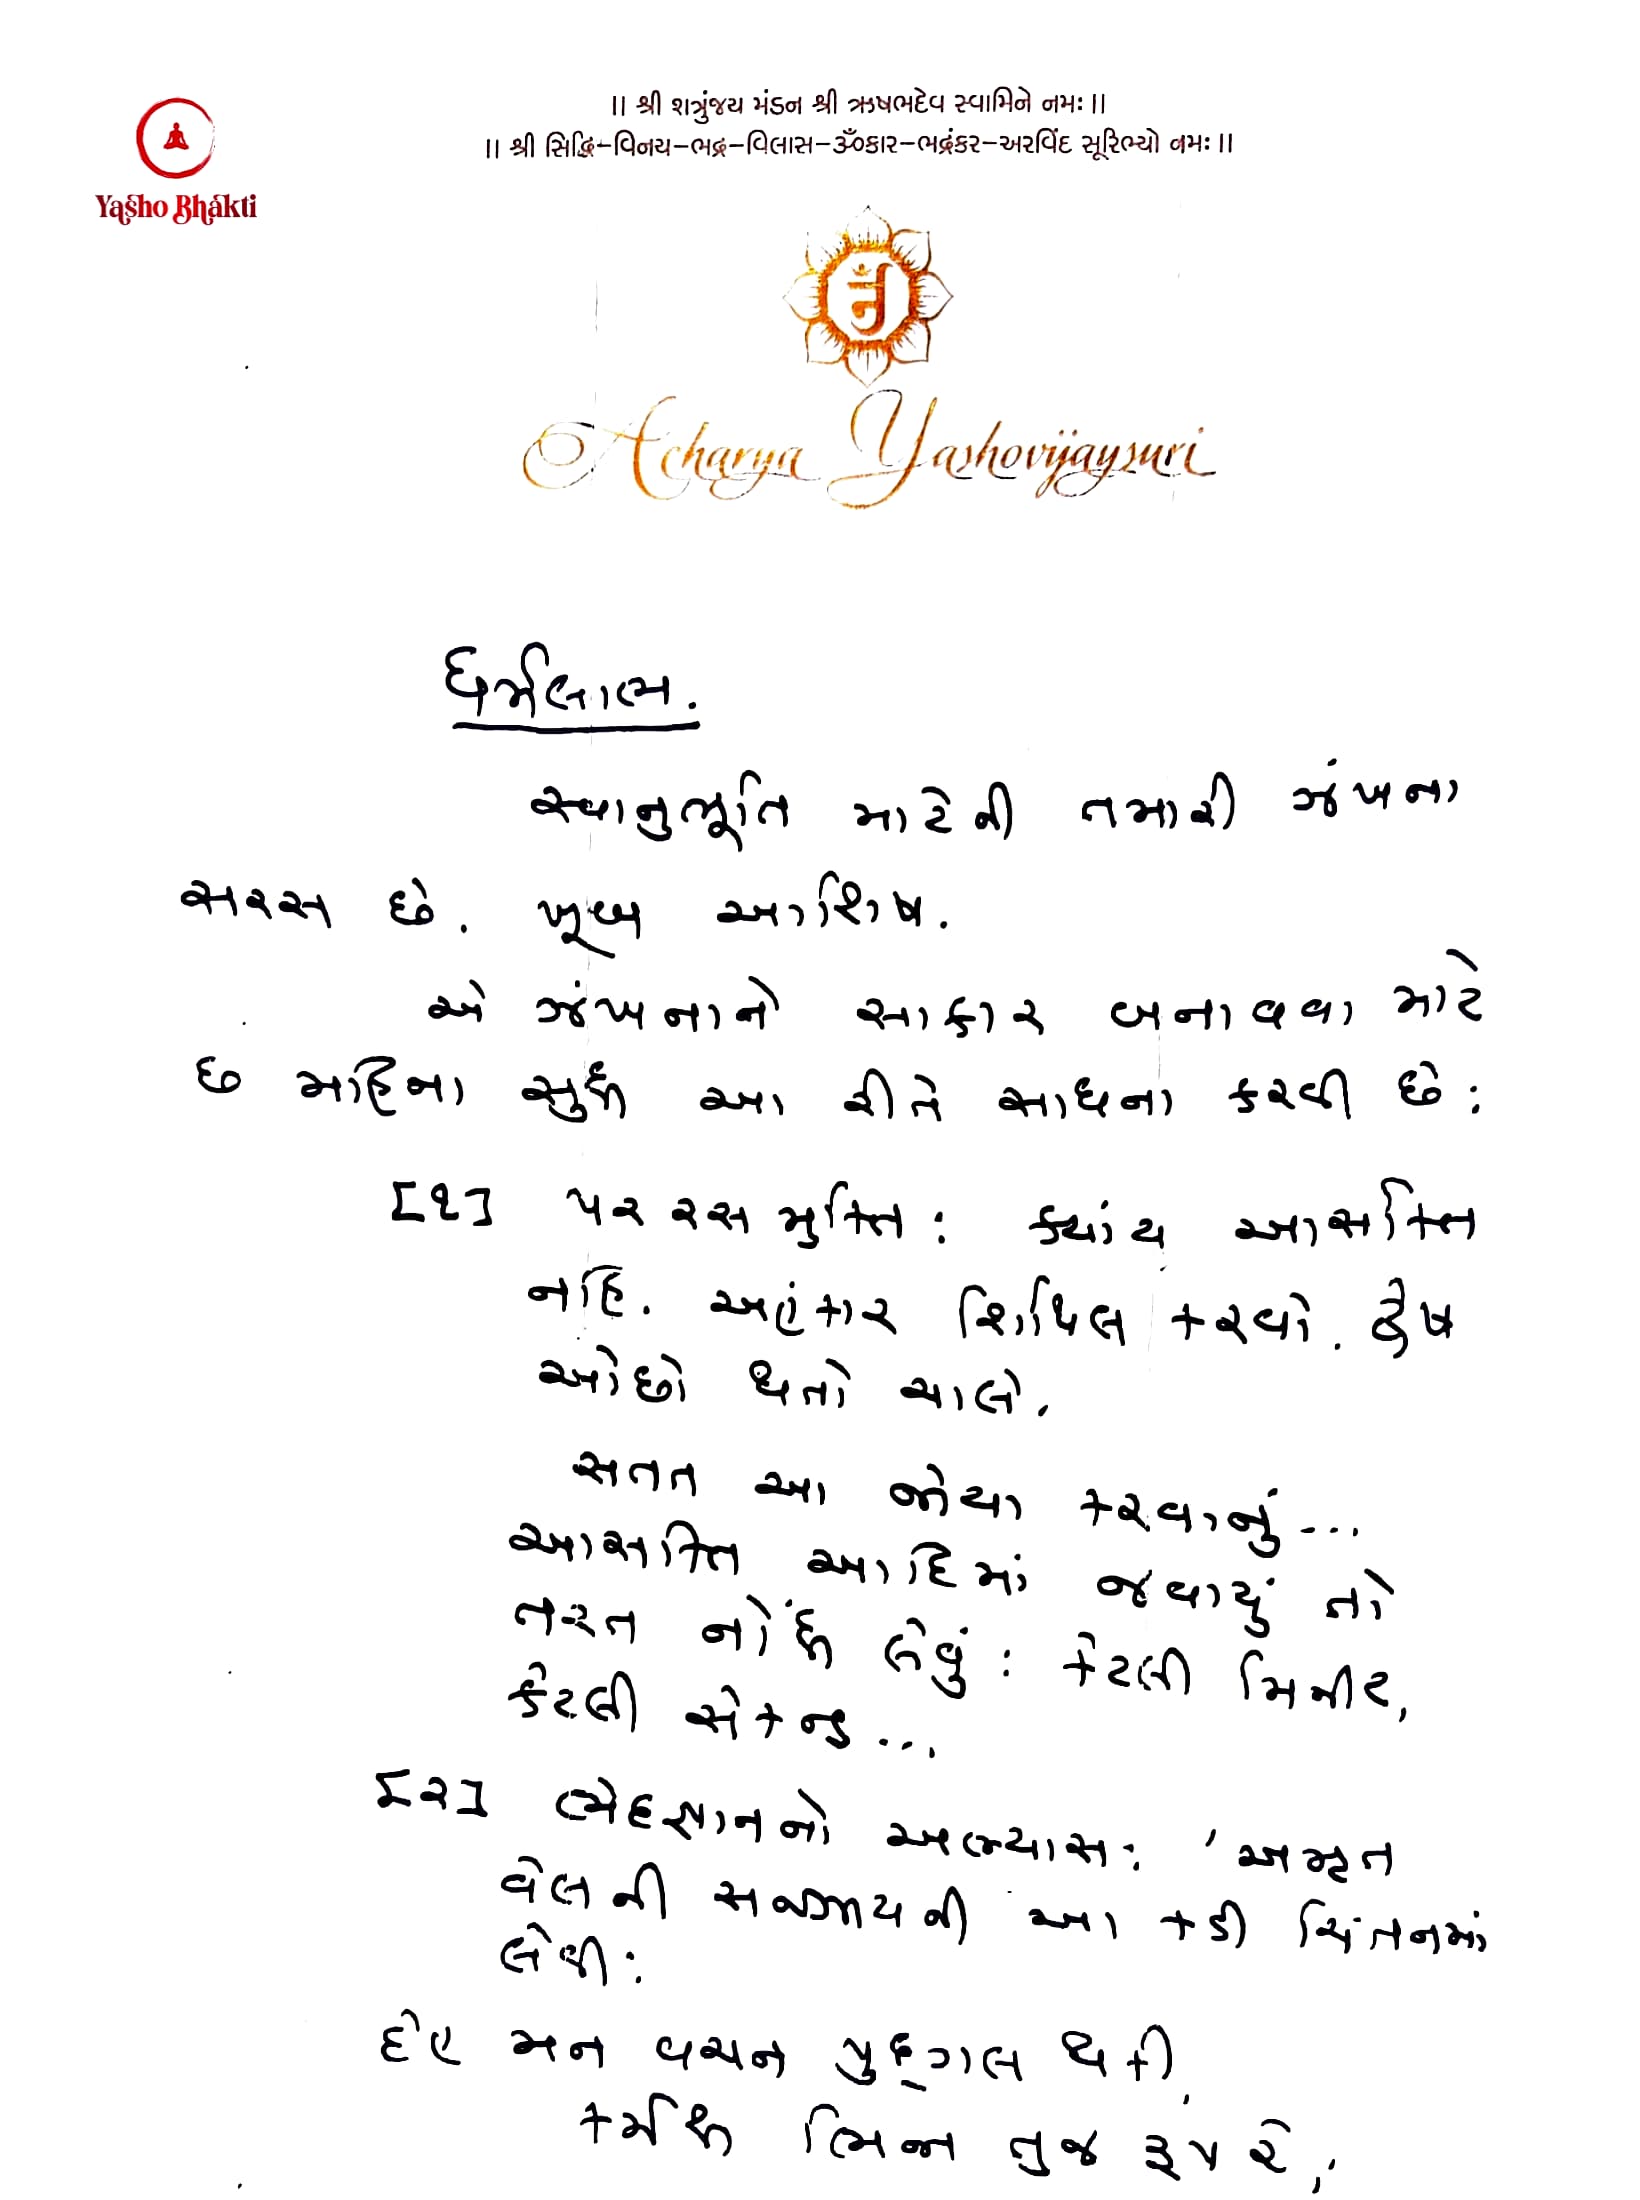 ॥ શ્રી શત્રુંજય મંડન શ્રી ઋષભદેવ સ્વામિને નમઃ ॥
॥ શ્રી સિદ્ધિ-વિનય-ભદ્ર-વિલાસ-ૐકાર-ભદ્રંકર-અરવિંદ સૂરિભ્યો નમઃ ॥
Yasho Bhakti
Acharya Yashovijaysuri
ધર્મલાભ.
સ્વાનુભૂતિ માટેની તમારી ઝંખના
સરસ છે. ખૂબ આશિષ.
એ ઝંખનાને સાકાર બનાવવા માટે
છ મહિના સુધી આ રીતે સાધના કરવી છે:
[૧] પર રસ મુક્તિ: ક્યાંય આસક્તિ
નહિ. અહંકાર શિથિલ કરવો. દ્વેષ
ઓછો થતો ચાલે.
સતત આ જોયા કરવાનું...
આસક્તિ આદિમાં જવાયું તો
તરત નોંધી લેવું: કેટલી મિનીટ,
કેટલી સેકન્ડ...
[૨] ભેદજ્ઞાનનો અભ્યાસ: 'અમૃત
વેલની સજ્ઝાયની આ કડી ચિંતનમાં
લેવી:
દેહ મન વચન પુદ્ગલ થકી,
કર્મથી ભિન્ન તુજ રૂપ રે;